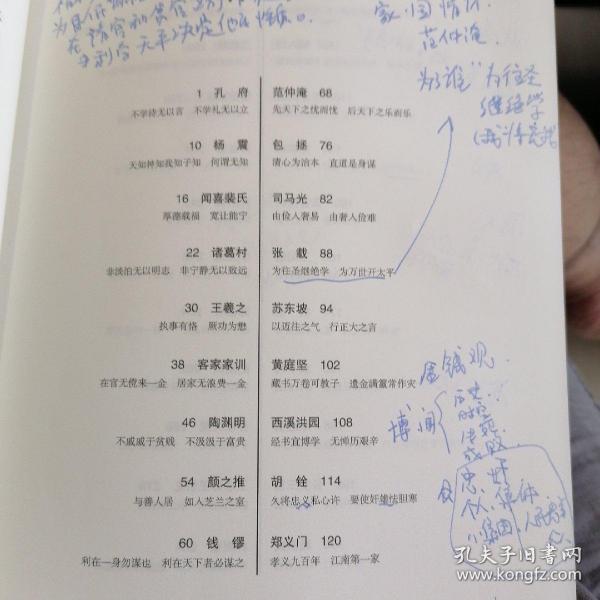 家国情怀
范仲淹
为了谁" 为往圣
继绝学
1 孔 府
不学诗无以言 不学礼无以立
10 杨 震
天知神知我知子知 何谓无知
16 闻喜裴氏
厚德载福 宽让能宁
22 诸葛村
非淡泊无以明志 非宁静无以致远
30 王羲之
执事有恪 厥功为懋
38 客家家训
在官无傥来一金 居家无浪费一金
46 陶渊明
不戚戚于贫贱 不汲汲于富贵
54 颜之推
与善人居 如入芝兰之室
60 钱 镠
利在一身勿谋也 利在天下者必谋之
范仲淹 68
先天下之忧而忧 后天下之乐而乐
包 拯 76
清心为治本 直道是身谋
司马光 82
由俭入奢易 由奢入俭难
张 载 88
为往圣继绝学 为万世开太平
苏东坡 94
以迈往之气 行正大之言
黄庭坚 102
藏书万卷可教子 遗金满籯常作灾
西溪洪园 108
经书宜博学 无惮历艰辛
胡 铨 114
久将忠义私心许 要使奸雄怯胆寒
郑义门 120
孝义九百年 江南第一家
金钱观
博闻
历史
忠 奸
集体
小集团
孔夫子旧书网
www.kongfz.com